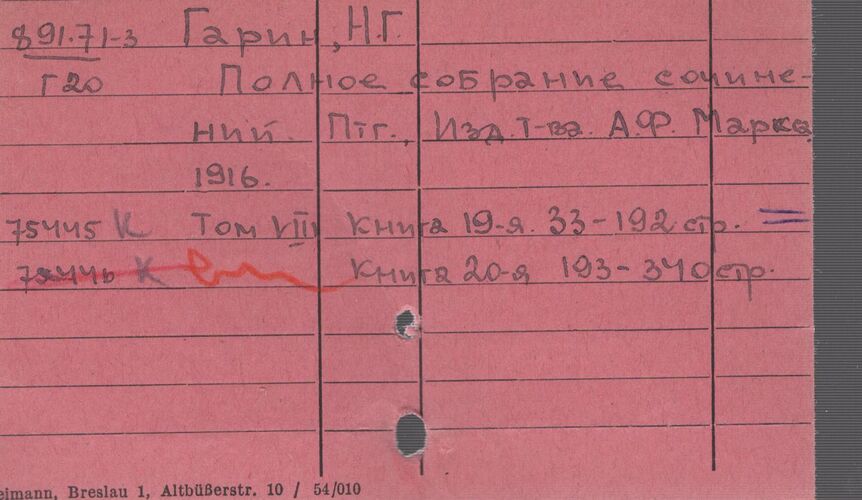 891.71-3 Гарин, Н.Г.
Г20 Полное собрание сочине-
ний. Птг., Изд. Т-ва. А.Ф. Маркса
1916.
75445 К Том VIII Книга 19-я. 33-192 стр. =
75446 К Книга 20-я 193-340 стр.
eimann, Breslau 1, Altbüßerstr. 10 / 54/010